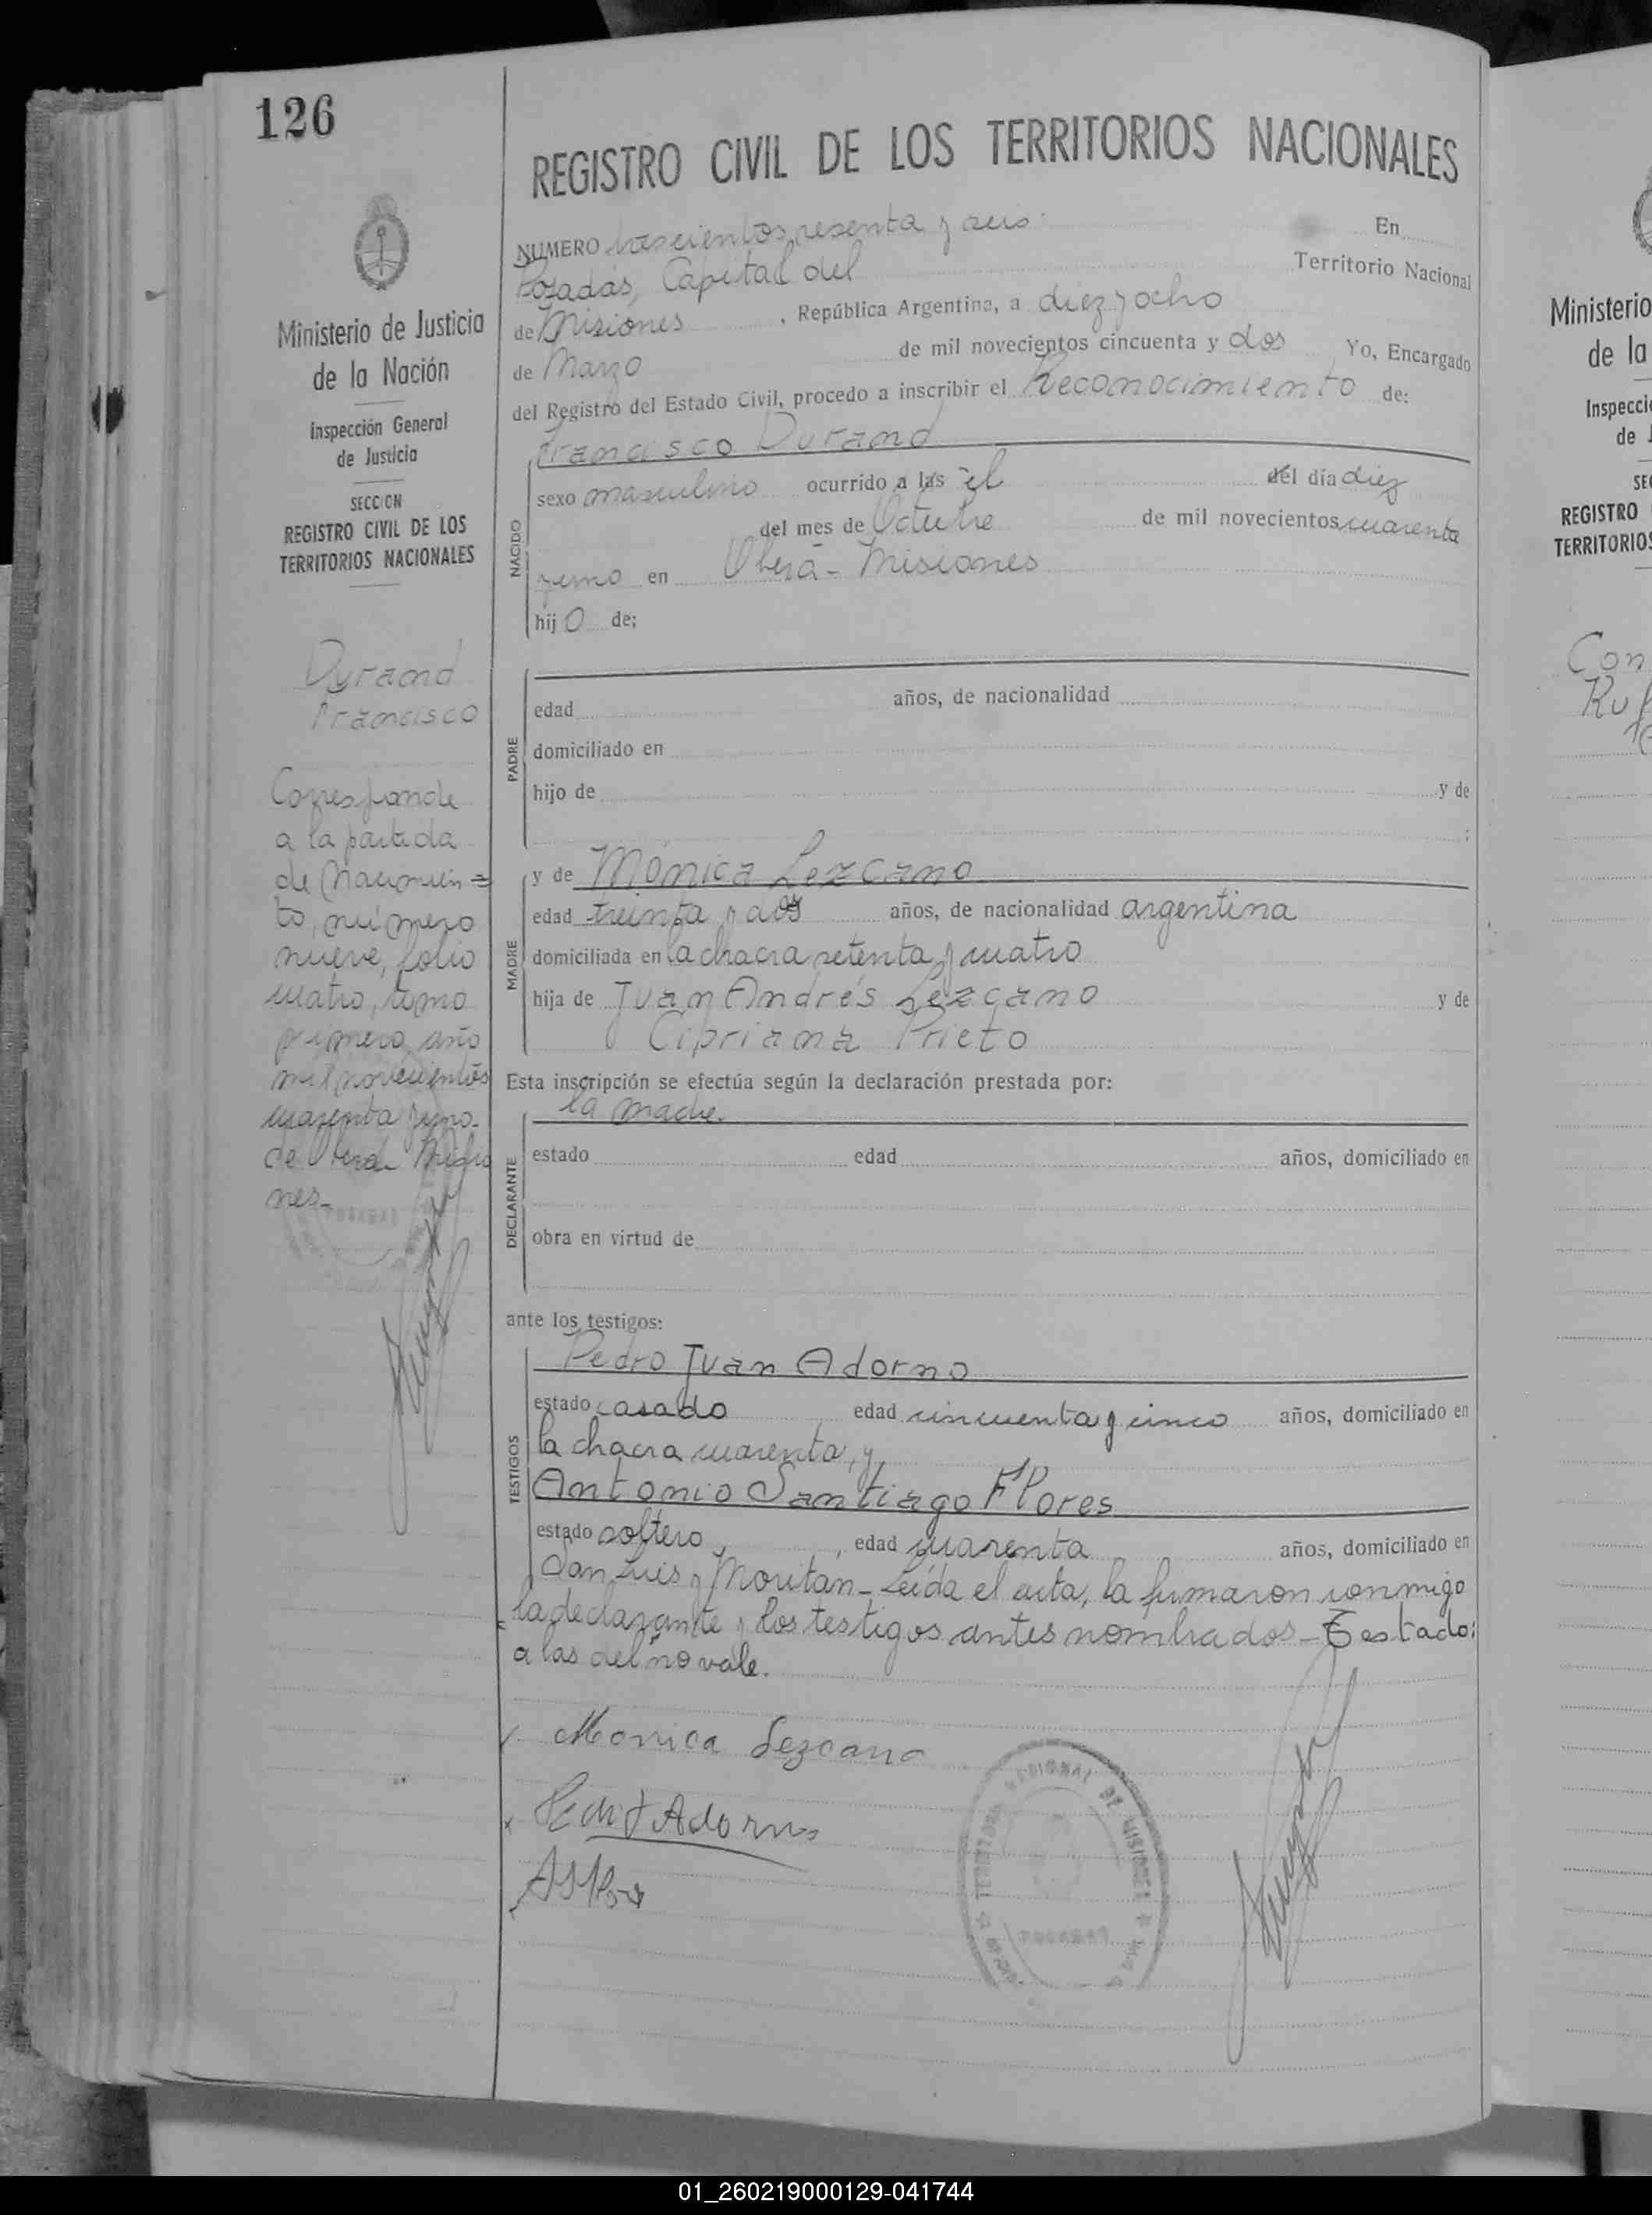 126
REGISTRO CIVIL DE LOS TERRITORIOS NACIONALES
NUMERO trescientos sesenta y seis. En
Posadas, Capital del Territorio Nacional
de Misiones, República Argentina, a diez y ocho
de Marzo de mil novecientos cincuenta y dos Yo, Encargado
del Registro del Estado Civil, procedo a inscribir el Reconocimiento de:
Francisco Durand
NACIDO
sexo masculino ocurrido a las el del día diez
del mes de Octubre de mil novecientos cuarenta
y uno en Oberá - Misiones
hijo de;
PADRE
edad años, de nacionalidad
domiciliado en
hijo de y de
;
MADRE
y de Mónica Lezcano
edad treinta y dos años, de nacionalidad argentina
domiciliada en la chacra setenta y cuatro
hija de Juan Andrés Lezcano y de
Cipriana Prieto
Esta inscripción se efectúa según la declaración prestada por:
la madre.
DECLARANTE
estado edad años, domiciliado en
obra en virtud de
ante los testigos:
TESTIGOS
Pedro Juan Adorno
estado casado edad cincuenta y cinco años, domiciliado en
la chacra cuarenta, y
Antonio Santiago Flores
estado soltero, edad cuarenta años, domiciliado en
San Luis y Moritán - Leída el acta, la firmaron conmigo
la declarante y los testigos antes nombrados - Testado:
a las del no vale.
Monica Lezcano
Adorno
Ministerio de Justicia
de la Nación
Inspección General
de Justicia
SECCION
REGISTRO CIVIL DE LOS
TERRITORIOS NACIONALES
Durand
Francisco
Corresponde
a la partida
de Nacimien=
to, número
nueve, folio
cuatro, tomo
primero, año
mil novecientos
cuarenta y uno -
de Oberá - Misio
nes -
POSADAS
TERRITORIO NACIONAL DE MISIONES
POSADAS
Ministerio
de la
Inspecci
de J
SE
REGISTRO
TERRITORIOS
Con
Ruf
01_260219000129-041744